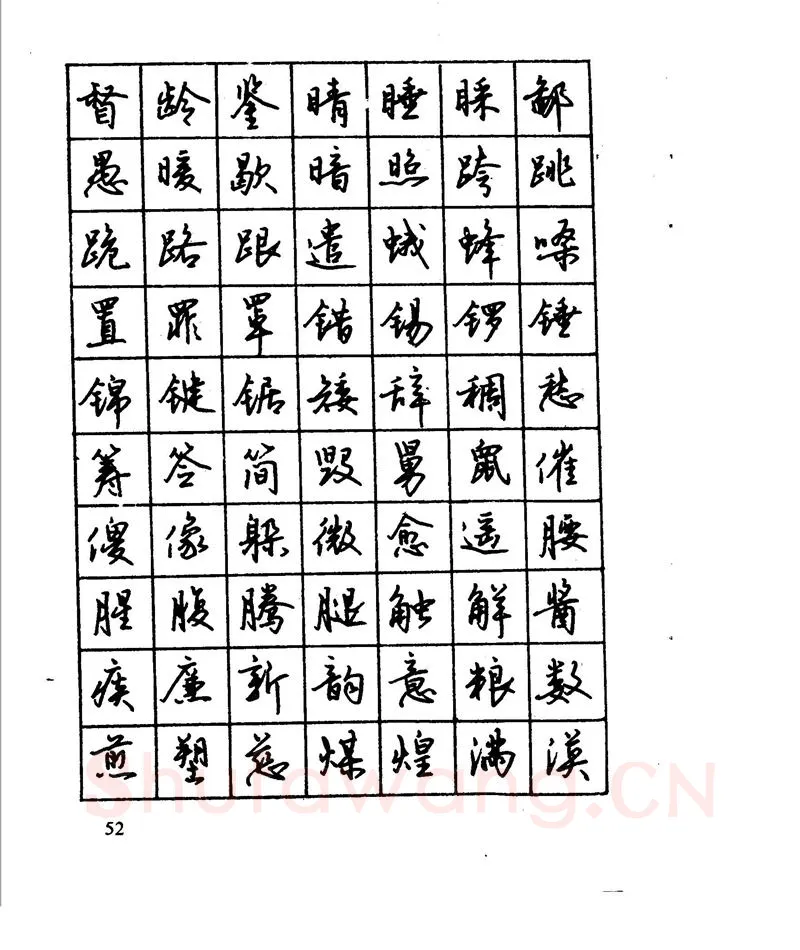 督龄鉴睛睡睬鄙
愚暖歇暗照跨跳
跪路跟遣蛾蜂嗓
置罪罩错锡锣锤
锦键锯矮辞稠愁
筹签简毁舅鼠催
傻像躲微愈遥腰
腥腹腾腿触解酱
痰廉新韵意粮数
煎塑慈煤煌满漠
Shufawang.CN
52